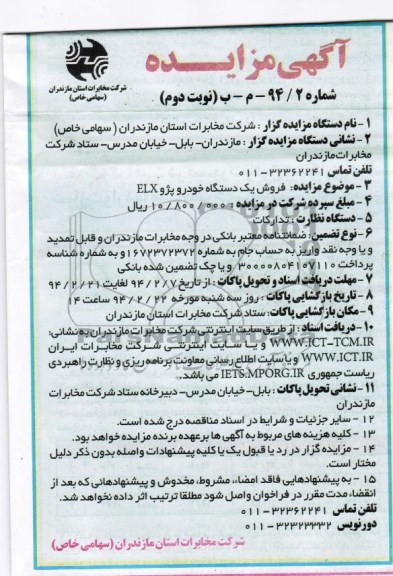 آگهی مزایده
شرکت مخابرات استان مازندران
(سهامی خاص)
شماره ۹۴/۲ - م - ب (نوبت دوم)
۱- نام دستگاه مزایده گزار : شرکت مخابرات استان مازندران ( سهامی خاص)
۲- نشانی دستگاه مزایده گزار : مازندران- بابل- خیابان مدرس- ستاد شرکت
مخابرات مازندران
تلفن تماس ۳۲۳۶۲۲۴۱-۰۱۱
۳- موضوع مزایده: فروش یک دستگاه خودرو پژو ELX
۴- مبلغ سپرده شرکت در مزایده : ۱۰/۸۰۰/۰۰۰ ریال
۵- دستگاه نظارت : تدارکات
۶- نوع تضمین: ضمانتنامه معتبر بانکی در وجه مخابرات مازندران و قابل تمدید
و یا وجه نقد واریز به حساب جام به شماره ۱۶۷۲۳۷۲۳۷۲ به شماره شناسه
پرداخت ۳۰۰۰۰۸۰۴۱۰۷۱۱۰ و یا چک تضمین شده بانکی
۷- مهلت دریافت اسناد و تحویل پاکات : از تاریخ ۹۴/۲/۷ لغایت ۹۴/۲/۲۱
۸- تاریخ بازگشایی پاکات : روز سه شنبه مورخه ۹۴/۲/۲۲ ساعت ۱۴
۹- مکان بازگشایی پاکات: ستاد شرکت مخابرات استان مازندران
۱۰- دریافت اسناد : از طریق سایت اینترنتی شرکت مخابرات مازندران به نشانی:
WWW.ICT-TCM.IR و یا سایت اینترنتی شرکت مخابرات ایران
WWW.ICT.IR و یا سایت اطلاع رسانی معاونت برنامه ریزی و نظارت راهبردی
ریاست جمهوری IETS.MPORG.IR می باشد.
۱۱- نشانی تحویل پاکات : بابل- خیابان مدرس- دبیرخانه ستاد شرکت مخابرات
مازندران
۱۲- سایر جزئیات و شرایط در اسناد مناقصه درج شده است.
۱۳- کلیه هزینه های مربوط به آگهی ها برعهده برنده مزایده خواهد بود.
۱۴- مزایده گزار در رد یا قبول یک یا کلیه پیشنهادات واصله بدون ذکر دلیل
مختار است.
۱۵- به پیشنهادهایی فاقد امضاء، مشروط، مخدوش و پیشنهادهائی که بعد از
انقضاء مدت مقرر در فراخوان واصل شود مطلقا ترتیب اثر داده نخواهد شد.
تلفن تماس ۳۲۳۶۲۲۴۱-۰۱۱
دورنویس ۳۲۳۲۳۳۳۲-۰۱۱
شرکت مخابرات استان مازندران (سهامی خاص)